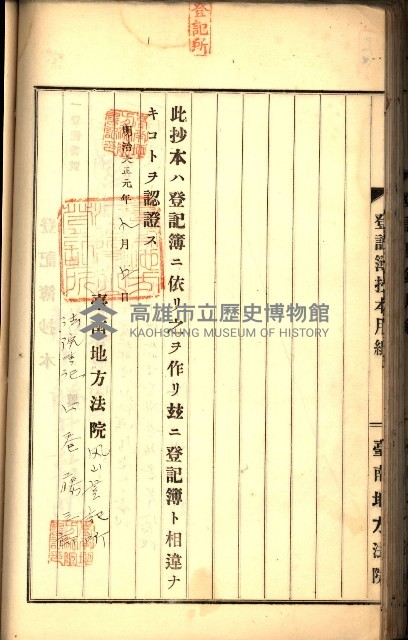 登記所
登記簿抄本用紙
臺南地方法院
此抄本ハ登記簿ニ依リ之ヲ作リ玆ニ登記簿ト相違ナ
キコトヲ認證ス
明治大正元年九月 日
臺南地方法院鳳山登記所
法院書記
高雄市立歷史博物館
KAOHSIUNG MUSEUM OF HISTORY
登記簿抄本